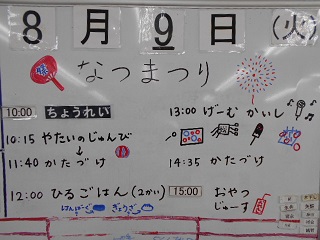 8月9日(火)
なつまつり
10:00 ちょうれい
10:15 やたいのじゅんび
11:40 かたづけ
12:00 ひるごはん(2かい)
はんばーぐ ぎょうざ
13:00 げーむ かいし
14:35 かたづけ
15:00 おやつ
じゅーす